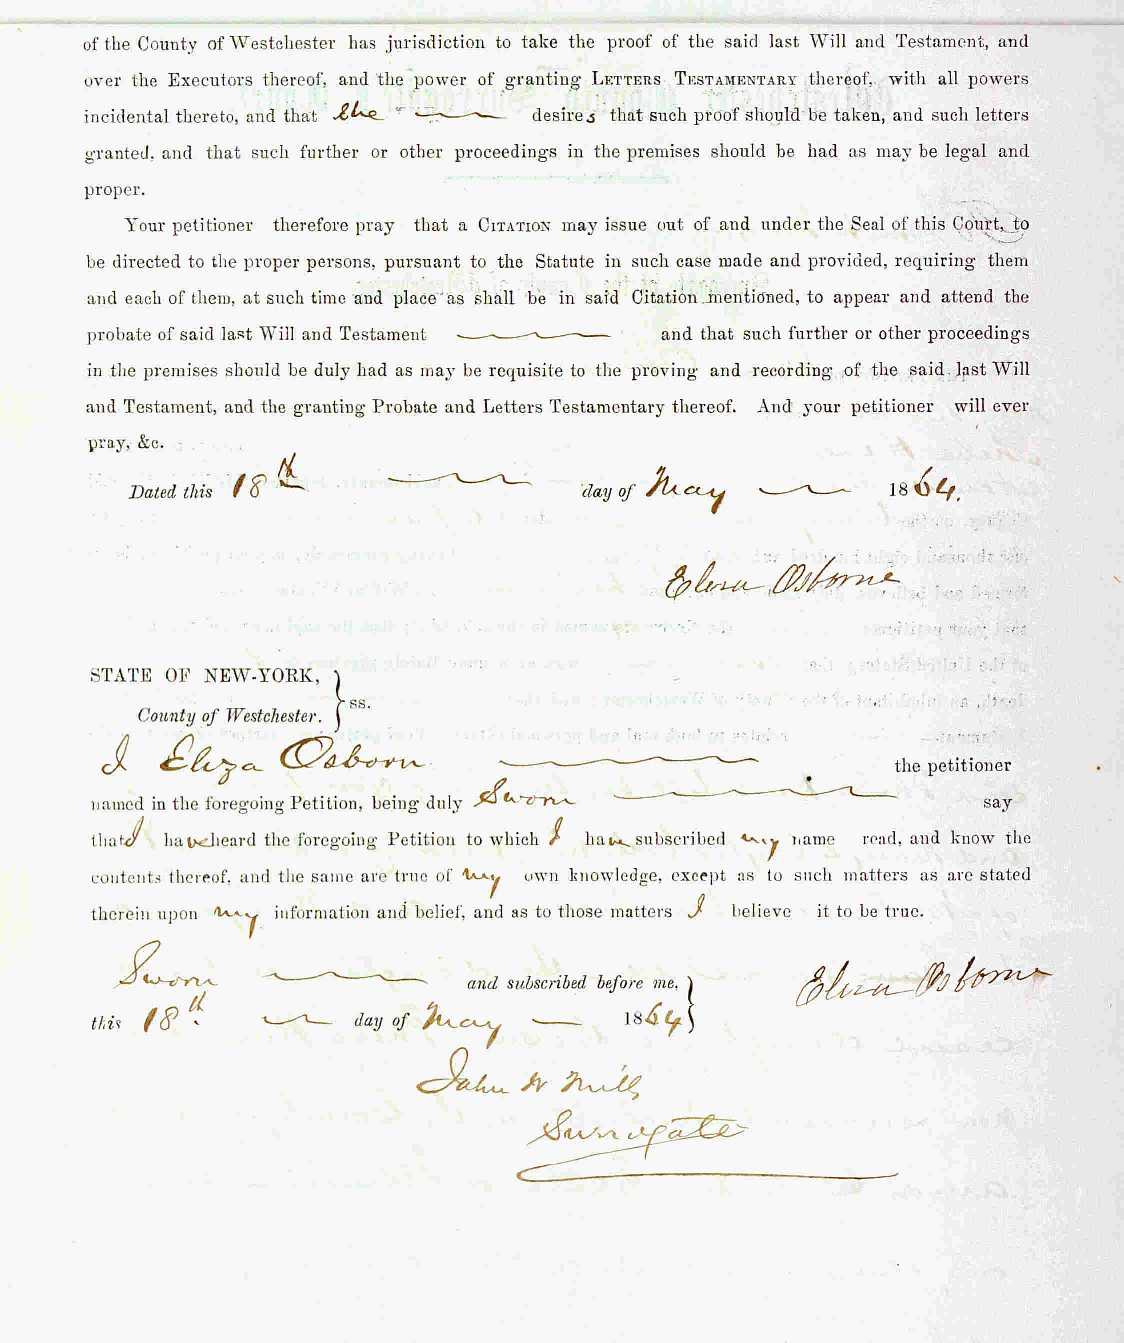 of the County of Westchester has jurisdiction to take the proof of the said last Will and Testament, and
over the Executors thereof, and the power of granting LETTERS TESTAMENTARY thereof, with all powers
incidental thereto, and that she desires that such proof should be taken, and such letters
granted, and that such further or other proceedings in the premises should be had as may be legal and
proper.
Your petitioner therefore pray that a CITATION may issue out of and under the Seal of this Court, to
be directed to the proper persons, pursuant to the Statute in such case made and provided, requiring them
and each of them, at such time and place as shall be in said Citation mentioned, to appear and attend the
probate of said last Will and Testament and that such further or other proceedings
in the premises should be duly had as may be requisite to the proving and recording of the said last Will
and Testament, and the granting Probate and Letters Testamentary thereof. And your petitioner will ever
pray, &c.
Dated this 18th day of May 1864.
Eliza Osborne
STATE OF NEW-YORK,
County of Westchester. } ss.
I Eliza Osborn the petitioner
named in the foregoing Petition, being duly Sworn say
that I have heard the foregoing Petition to which I have subscribed my name read, and know the
contents thereof, and the same are true of my own knowledge, except as to such matters as are stated
therein upon my information and belief, and as to those matters I believe it to be true.
Sworn and subscribed before me, } Eliza Osborne
this 18th. day of May 1864
John W Mills
Surrogate